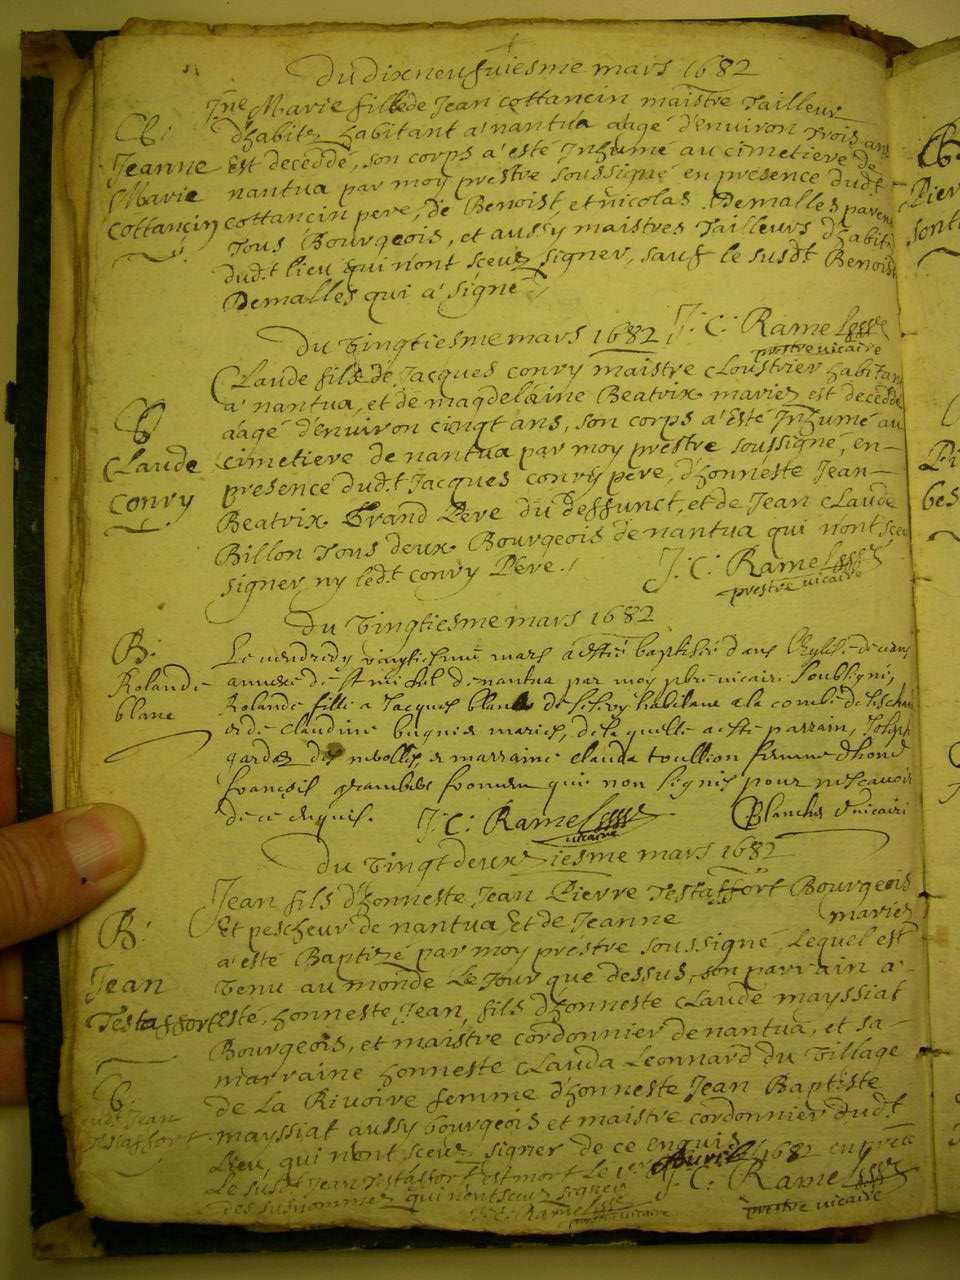 Du dixneufviesme mars 1682
Jne Marie fille de Jean Cottancin maistre Tailleur
d'habitz habitant a nantua aagé d'environ Trois ans
Est decedde, son corps a esté Inhumé au cimetiere de
nantua par moy prestre soussigné en presence dudt
cottancin pere, de Benoist et nicolas Demalles parens
Tous Bourgeois, et aussy maistres Tailleurs d'habitz
dudt lieu qui n'ont sceuz signer, sauf le susdt Benoist
Demalles qui a signé
Jeanne
Marie
Cottancin
J: C: Ramel
prestre vicaire
Du Vingtiesme mars 1682
Claude fils de Jacques convy maistre Cloustrier habitant
a nantua, et de magdelaine Beatrix mariez est decedde
aagé d'environ cinqt ans, son corps a esté Inhumé au
cimetiere de nantua par moy prestre soussigné, en
presence dudt Jacques convy pere, d'honneste Jean
Beatrix Grand Pere du deffunct, et de Jean Claude
Billon Tous deux Bourgeois de nantua qui n'ont sceu
signer ny ledt convy Pere.
Claude
Convy
J: C: Ramel
prestre vicaire
Du Vingtiesme mars 1682
Le vendredy vingtiesme mars a esté baptisée dans l'Eglise de
annexe de st michel de nantua par moy pbre vicaire soubsigné,
Rolande fille a Jacques blanc habitant a la combe
et de Claudine mariez, de laquelle a esté parrain, Joseph
et marraine clauda toullion femme d'hone
françois qui non signés pour ne scavoir
de ce enquis.
B:
Rolande
blanc
J: C: Ramel
vicaire
Blanchet vicaire
Du Vingt deuxziesme mars 1682
Jean fils d'honneste Jean Pierre Testaffort Bourgeois
Et pescheur de nantua Et de Jeanne mariez
a esté Baptizé par moy prestre soussigné, lequel est
Venu au monde Le Jour que dessus, son parrain a
Esté, honneste Jean, fils d'honneste Claude mayssiat
Bourgeois, et maistre cordonnier de nantua, et sa
marraine honneste Clauda Leonnard du Village
de La Rivoire femme d'honneste Jean Baptiste
mayssiat aussy bourgeois et maistre cordonnier dudt
Lieu, qui n'ont sceuz signer de ce enquis
B:
Jean
Testaffort
J: C: Ramel
prestre vicaire
dudt Jean
Testaffort
Le susdt Jean Testaffort est mort le 1er Avril 1682 en
des susnommez qui n'ont sceuz signer
J: C: Ramel
prestre vicaire